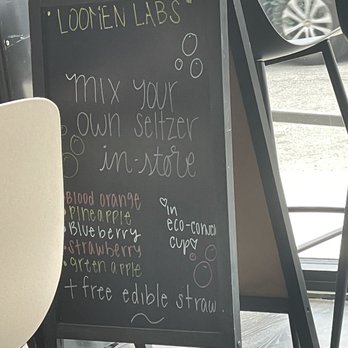 "LOOMEN LABS"
mix your
own seltzer
in-store
Blood orange
Pineapple
Blueberry
strawberry
green apple
♡in
eco-conscious
cup♡
+ free edible straw.